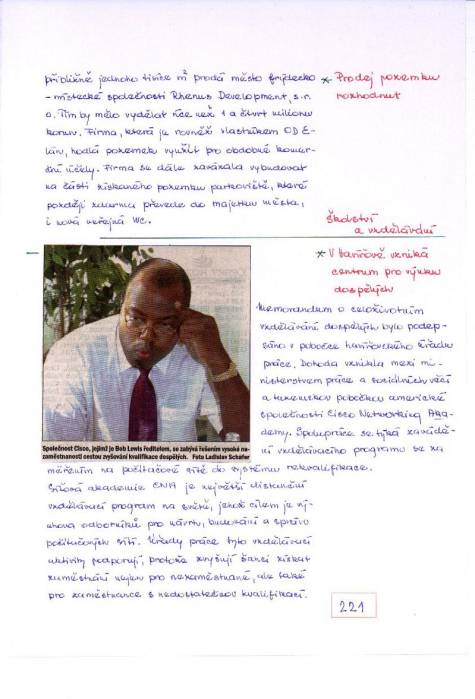 přibližně jednoho tisíce m² prodá město frýdecko
-místecké společnosti Rhenus Development, s.r.
o. Tím by mělo vydělat více než 1 a čtvrt milionu
korun. Firma, která je rovněž vlastníkem OD E-
lán, hodlá pozemek využít pro obdobné komer-
ční účely. Firma se dále zavázala vybudovat
na části získaného pozemku parkoviště, které
později zdarma převede do majetku města,
i nová veřejná WC.
* Prodej pozemku
rozhodnut
Školství
a vzdělávání
* V Havířově vzniká
centrum pro výuku
dospělých
Memorandum o celoživotním
vzdělávání dospělých bylo podep-
sáno v pobočce havířovského úřadu
práce. Dohoda vznikla mezi mi-
nisterstvem práce a sociálních věcí
a tuzemskou pobočkou americké
společnosti Cisco Networking Aka-
demy. Spolupráce se týká zavádě-
ní vzdělávacího programu se za
Společnost Cisco, jejímž je Bob Lewis ředitelem, se zabývá řešením vysoké ne-
zaměstnanosti cestou zvyšování kvalifikace dospělých. Foto Ladislav Schäfer
měřením na počítačové sítě do systému rekvalifikace.
Síťová akademie CNA je největší distanční
vzdělávací program na světě, jehož cílem je vý-
chova odborníků pro návrh, budování a správu
počítačových sítí. Úřady práce tyto vzdělávací
aktivity podporují, protože zvyšují šanci získat
zaměstnání nejen pro nezaměstnané, ale také
pro zaměstnance s nedostatečnou kvalifikací.
221